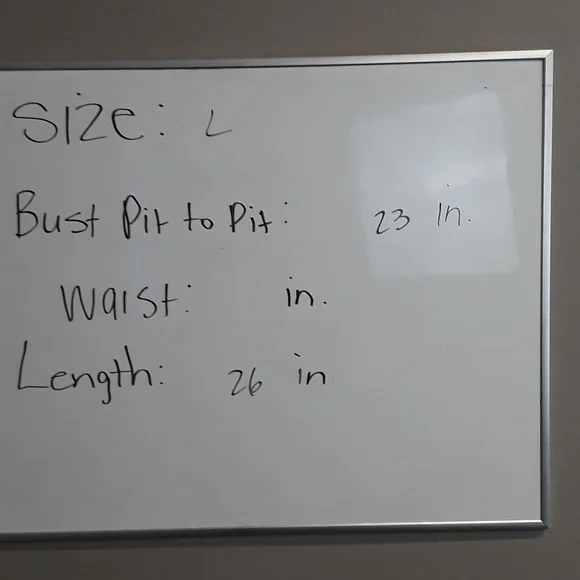 Size: L
Bust Pit to Pit: 23 in.
Waist: in.
Length: 26 in